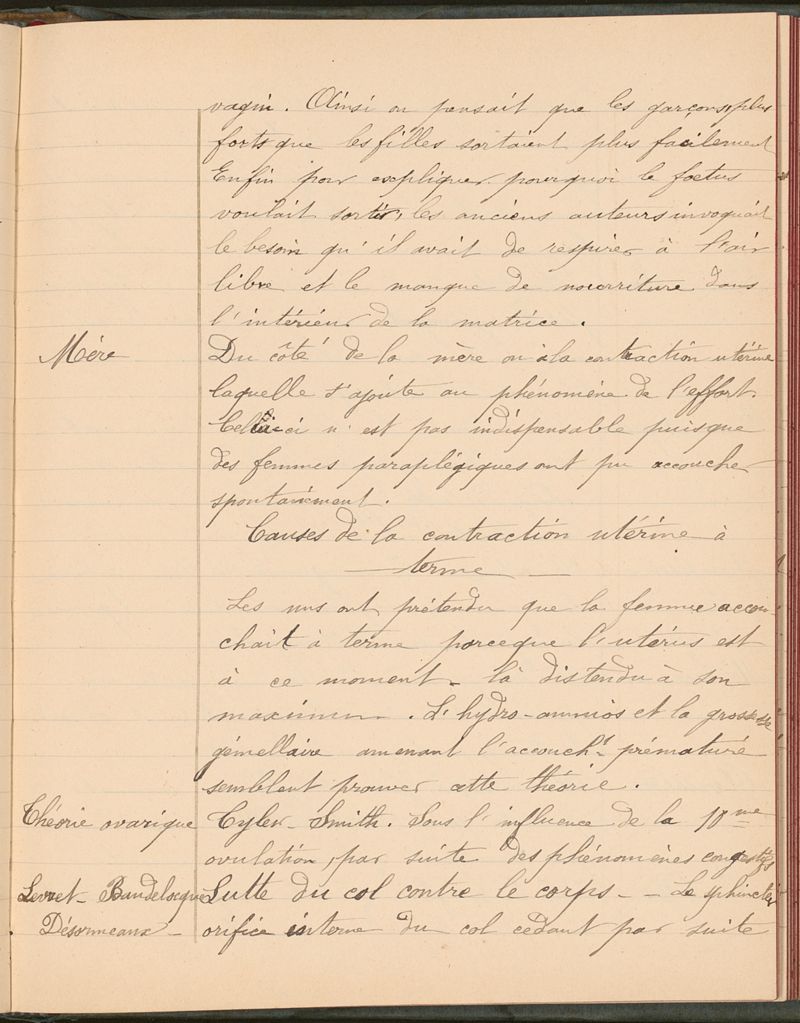 vagin. Ainsi on pensait que les garçons plus
forts que les filles sortaient plus facilement
Enfin pour expliquer pourquoi le foetus
voulait sortir, les anciens auteurs invoquait
le besoin qu'il avait de respirer à l'air
libre et le manque de nourriture dans
l'intérieur de la matrice.
Mère
Du côté de la mère on a la contraction utérine
laquelle s'ajoute au phénomène de l'effort.
Celui-ci n'est pas indispensable puisque
des femmes paraplégiques ont pu accoucher
spontanément.
Causes de la contraction utérine à
terme
Les uns ont prétendu que la femme accou-
chait à terme parceque l'utérus est
à ce moment-là distendu à son
maximum. L'hydro-amnios et la grossesse
gémellaire amenant l'accoucht prématuré
semblent prouver cette théorie.
Théorie ovarique
Tyler-Smith. Sous l'influence de la 10me
ovulation, par suite des phénomènes congestifs
Levret-Baudelocque
Lutte du col contre le corps - - Le sphincter
Désormeaux -
orifice interne du col cédant par suite